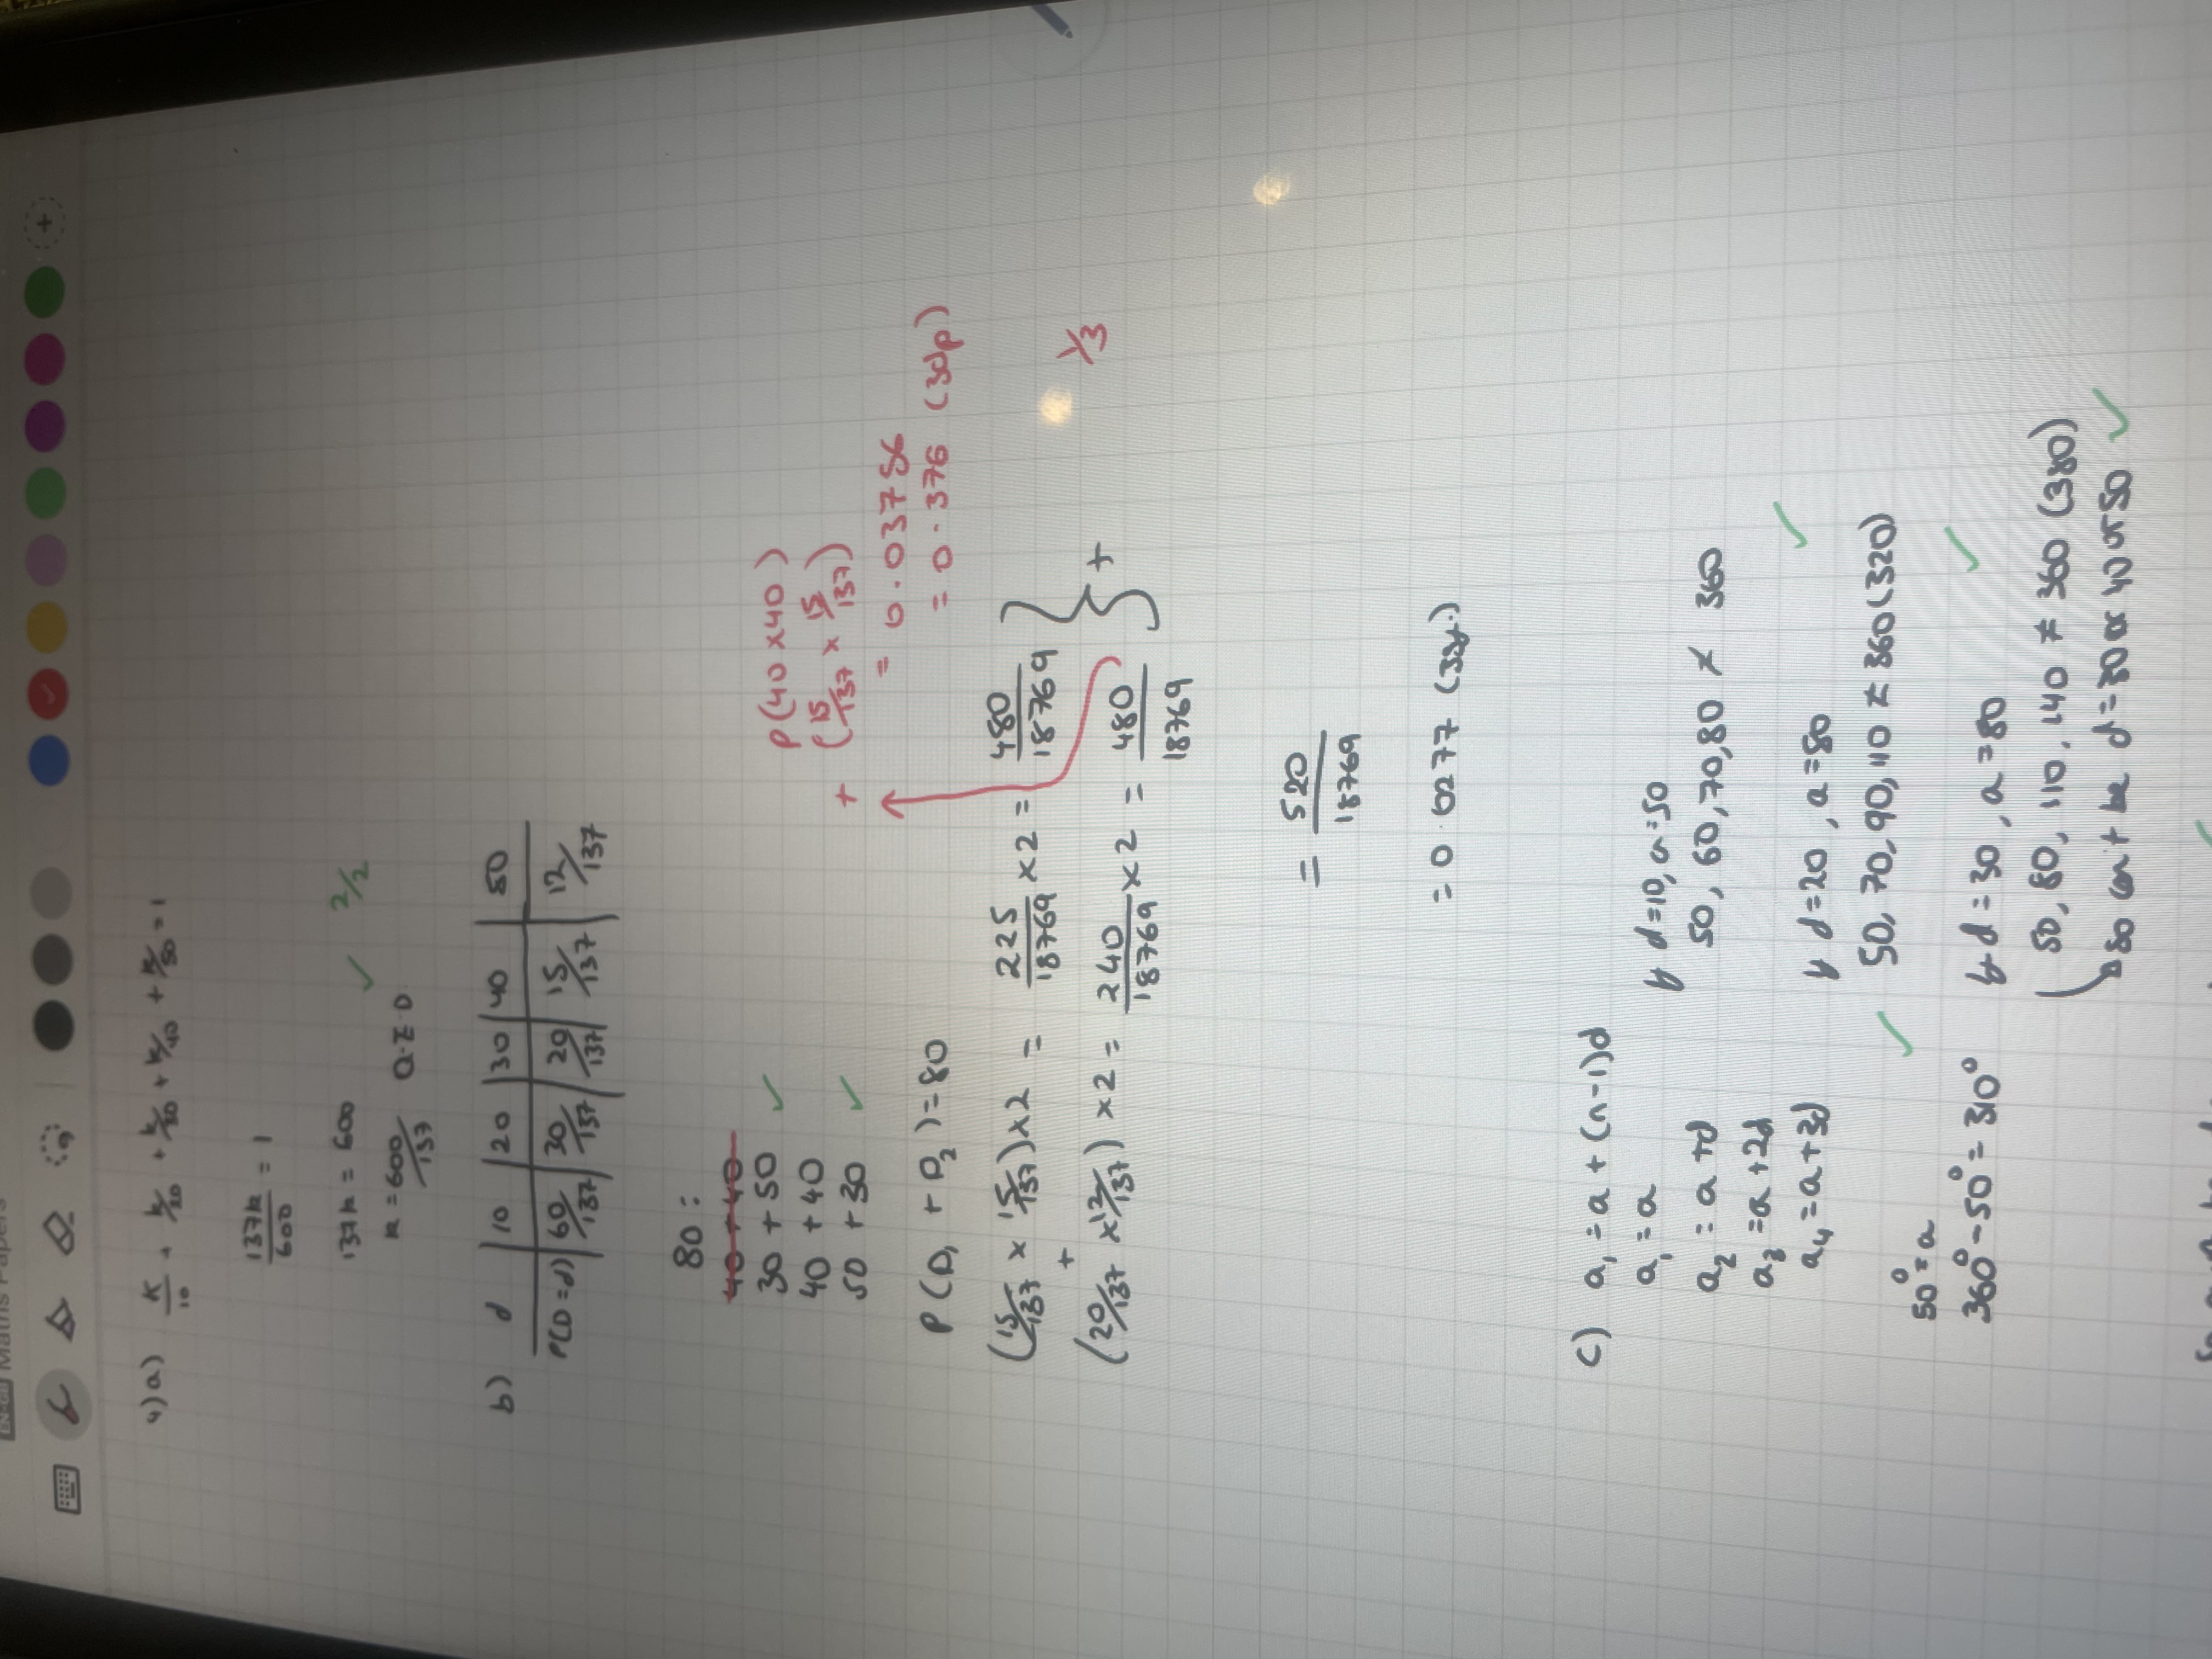 Maths Papers
4)a) K/10 + k/20 + k/30 + k/40 + k/50 = 1
137k/600 = 1
137k = 600 ✓ 2/2
k = 600/137 Q.E.D
b) d | 10 | 20 | 30 | 40 | 50
P(D=d) | 60/137 | 30/137 | 20/137 | 15/137 | 12/137
80:
40 + 40
30 + 50 ✓
40 + 40
50 + 30 ✓
P(D₁ + D₂) = 80
+ P(40 x 40)
(15/137 x 15/137)
= 0.03756
= 0.376 (3dp)
(15/137 x 15/137) x 2 = 225/18769 x 2 = 480/18769 } +
+
(20/137 x 12/137) x 2 = 240/18769 x 2 = 480/18769
1/3
= 520/18769
= 0.0277 (3sf.)
c) a₁ = a + (n-1)d
a₁ = a
a₂ = a + d
a₃ = a + 2d
a₄ = a + 3d
50° = a ✓
360° - 50° = 310°
if d = 10, a = 50
50, 60, 70, 80 ≠ 360
if d = 20, a = 80 ✓
50, 70, 90, 110 ≠ 360 (320)
if d = 30, a = 80 ✓
50, 80, 110, 140 ≠ 360 (380)
so can't be d = 30 or 40 or 50 ✓